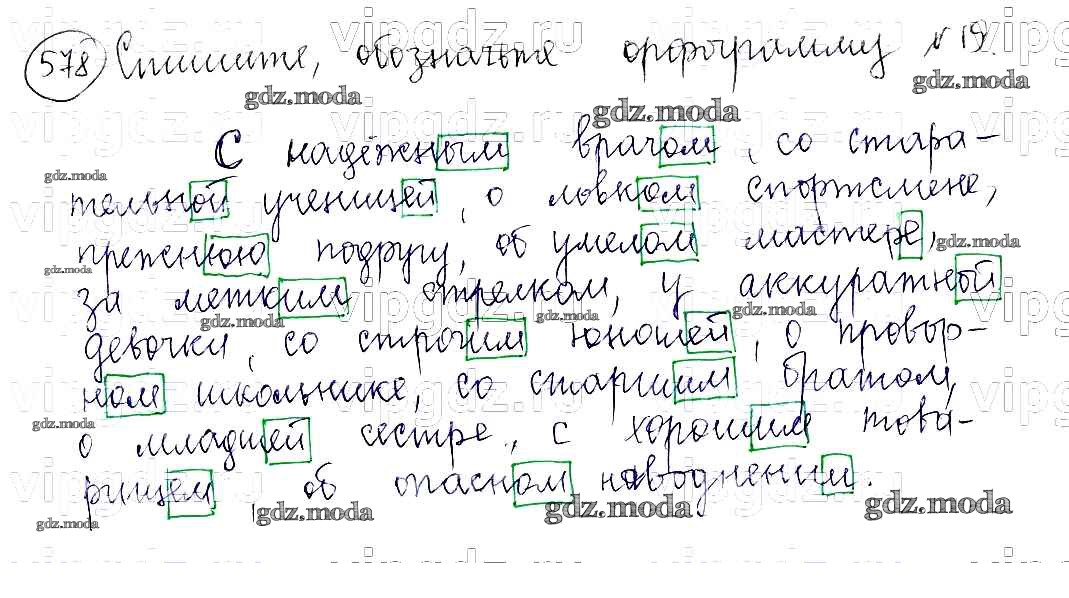 578 Спишите, обозначьте орфограмму №19.
С надёжным врачом, со стара-
тельной ученицей, о ловком спортсмене,
прежнюю подругу, об умелом мастере,
за метким стрелком, у аккуратной
девочки, со строгим юношей, о провор-
ном школьнике, со старшим братом,
о младшей сестре, с хорошим това-
рищем, об опасном наводнении.
vipgdz.ru
gdz.moda